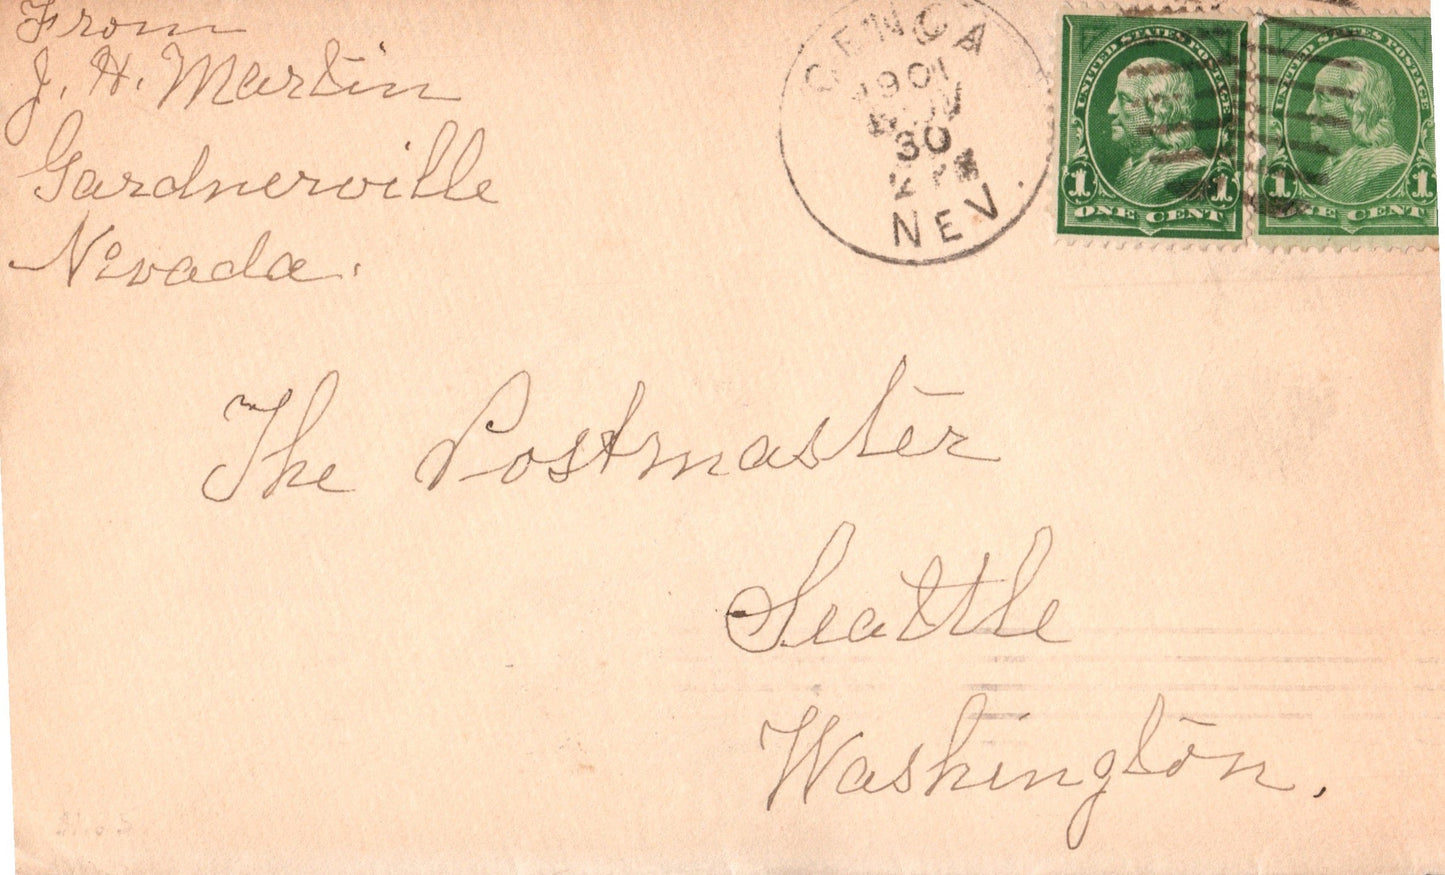 From
J. H. Martin
Gardnerville
Nevada.
GENOA
1901
NOV
30
2 PM
NEV.
UNITED STATES POSTAGE
1 1
ONE CENT
UNITED STATES POSTAGE
1 1
ONE CENT
The Postmaster
Seattle
Washington.